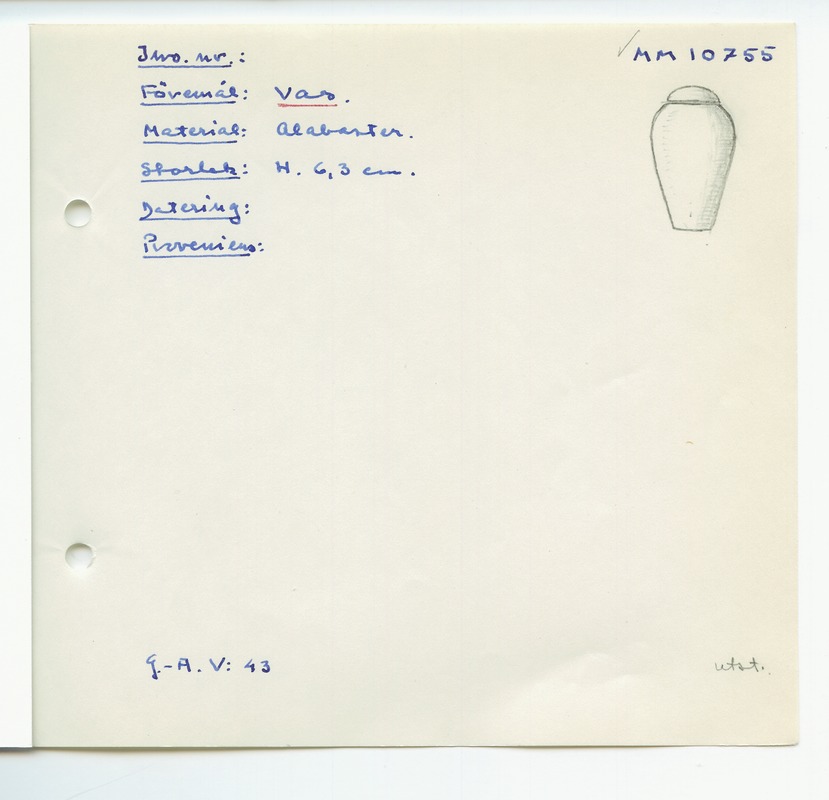 Inv. nr.: MM 10755
Föremål: Vas.
Material: Alabaster.
Storlek: H. 6,3 cm.
Datering:
Proveniens:
G.-A. V: 43
utst.